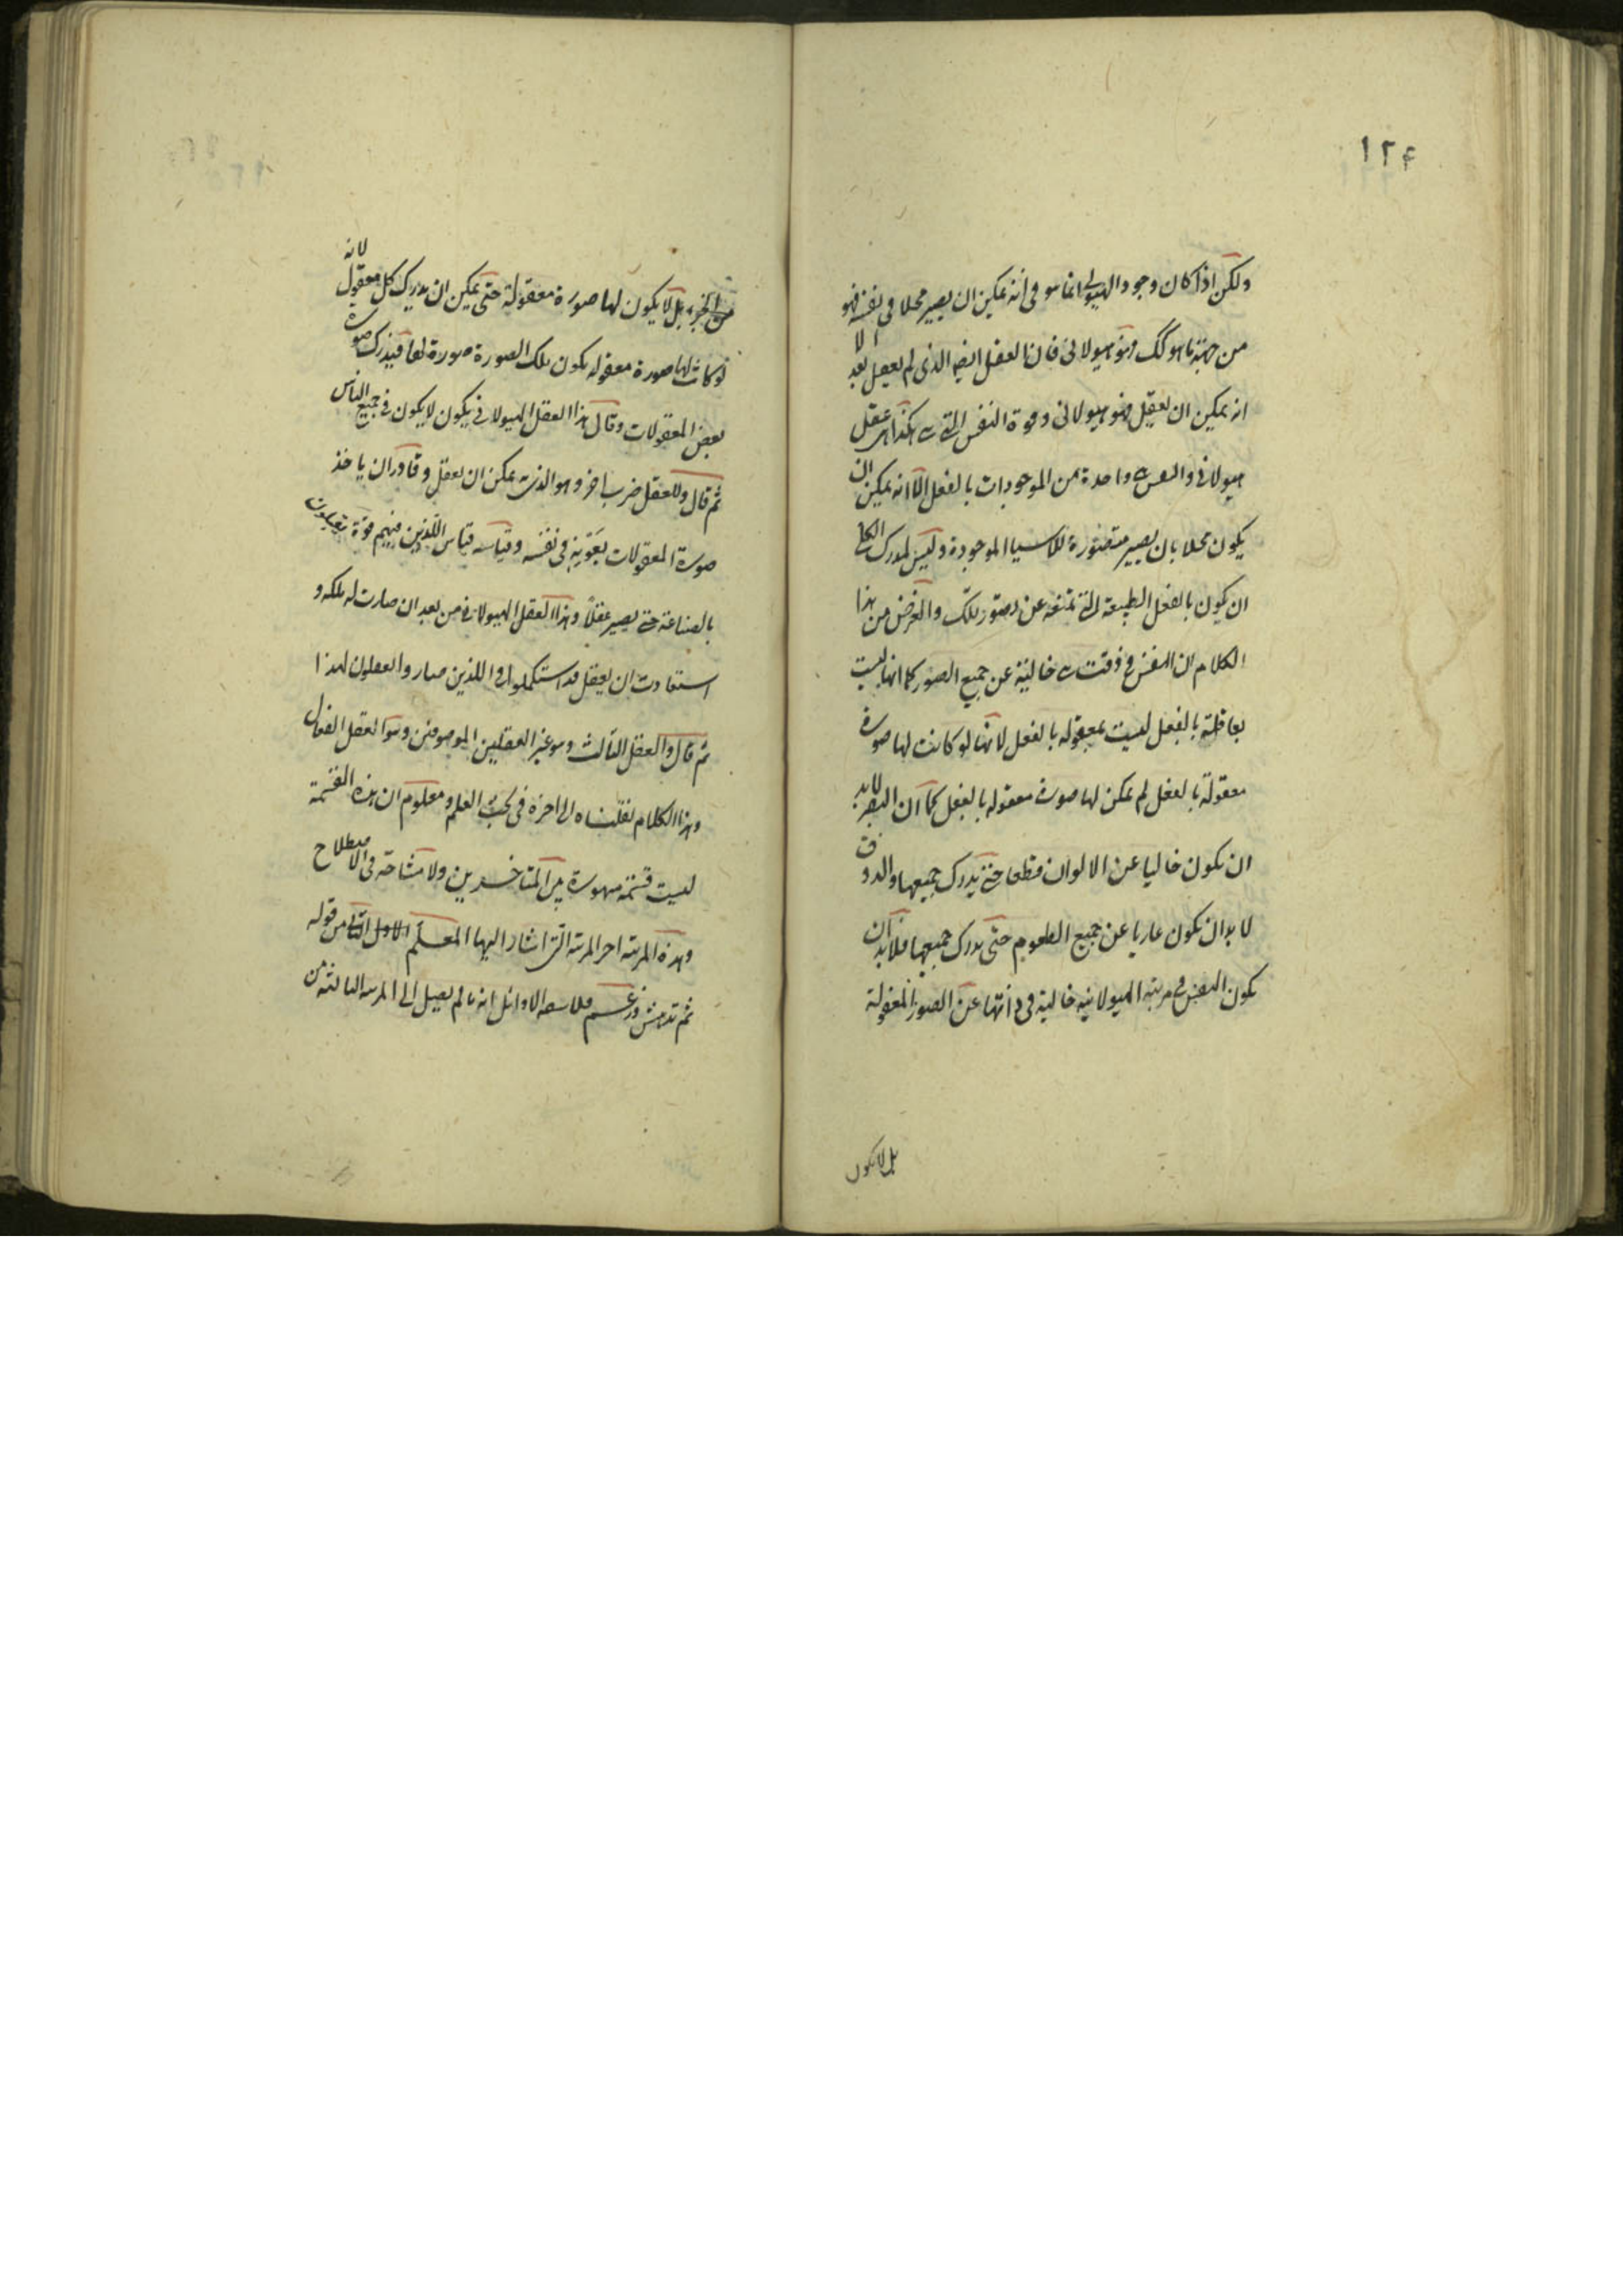 ١٢٤
ولكن اذا كان وجود الهيولى انما هو فى انه يمكن ان يصير محلا فى نفسه فهو
من جهة ما هو كك وهو هيولانى فان العقل ايضا الذى لم يعقل بعد الا
انه يمكن ان يعقل فهو هيولانى وقوة النفس التى هى هكذا هى عقل
هيولانى وليس واحدة من الموجودات بالفعل الا انه يمكن ان
يكون محلا بان يصير متصورة للاشيا الموجودة وليس لمدرك الكل
ان يكون بالفعل الطبيعة التى تمنعه عن تصور تلك والغرض من هذا
الكلام ان النفس فى وقت هى خالية عن جميع الصور كما انها ليست
بعاقلة بالفعل ليست بمعقوله بالفعل لانها لو كانت لها صورة
معقولة بالفعل لم يمكن لها صورة معقوله بالفعل كما ان البصر لابد
ان يكون خاليا عن الالوان قطعا حتى يدرك جميعها والذوق
لابد ان يكون عاريا عن جميع الطعوم حتى يدرك جميعها فلابد ان
يكون النفس فى مرتبه الهيولانيه خالية فى ذاتها عن الصور المعقولة
بل لا يكون
بل لا يكون لها صورة معقولة حتى يمكن ان يدرك كل معقول لانه
لو كانت لها صورة معقوله يكون تلك الصورة صورة لها فيدرك صورة
بعض المعقولات وقال هذا العقل الهيولانى يكون لا يكون فى جميع الناس
ثم قال وللعقل ضرب اخر وهو الذى يمكن ان يعقل وقادر ان ياخذ
صورة المعقولات بقوته فى نفسه وقياسه قياس اللذين فيهم قوة يعملون
بالصناعة حتى يصير عقلا وهذا العقل الهيولانى من بعد ان صارت له ملكه و
استفادت ان يعقل قد استكملوا وا اللذين صاروا يعقلون لهذا
ثم قال والعقل الثالث وهو غير العقلين الموصوفين وهو العقل الفعال
وهذا الكلام نقلناه الى اخره فى كتب العلم ومعلوم ان هذه القسمة
ليست قسمة مهورة بين المتاخرين ولا مشاحة فى الاصطلاح
وهذه المرتبة اخر المرتبة التى اشار اليها المعلم الاول الثانى من قوله
ثم تدهش وزعم فلاسفه الاوائل انه ما لم يصل الى المرتبه الثالثه من